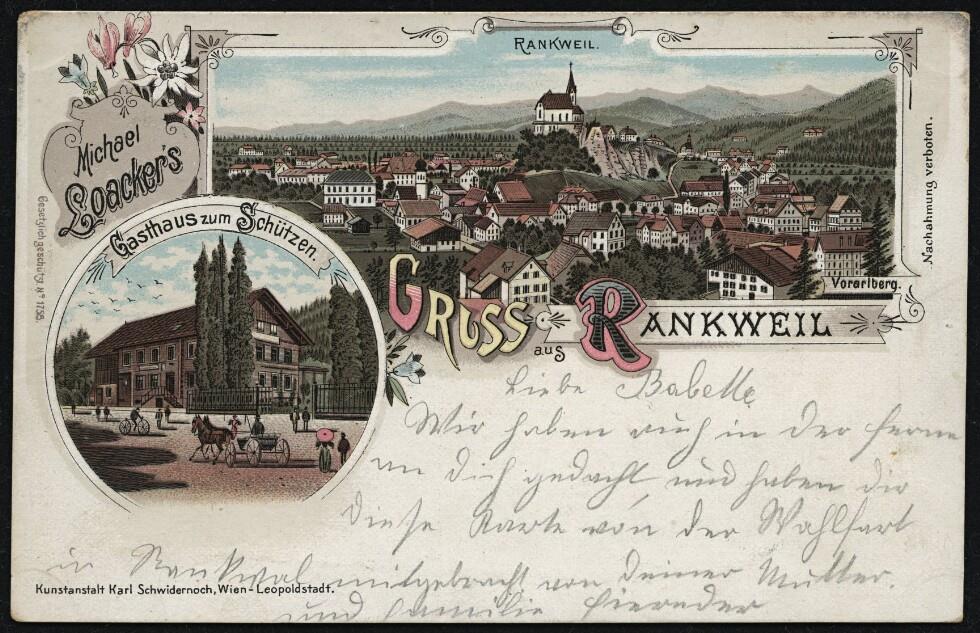 RANKWEIL.
Michael
Loacker's
Gasthaus zum Schützen.
Vorarlberg.
Nachahmung verboten.
Gesetzlich geschützt No 1136.
GRUSS
aus
RANKWEIL
Liebe Babette
Wir haben auch in der ferne
an dich gedacht und haben dir
diese Karte von der Wahlfart
in Rankwal mitgebracht von deiner Mutter.
und familie
Kunstanstalt Karl Schwidernoch, Wien-Leopoldstadt.